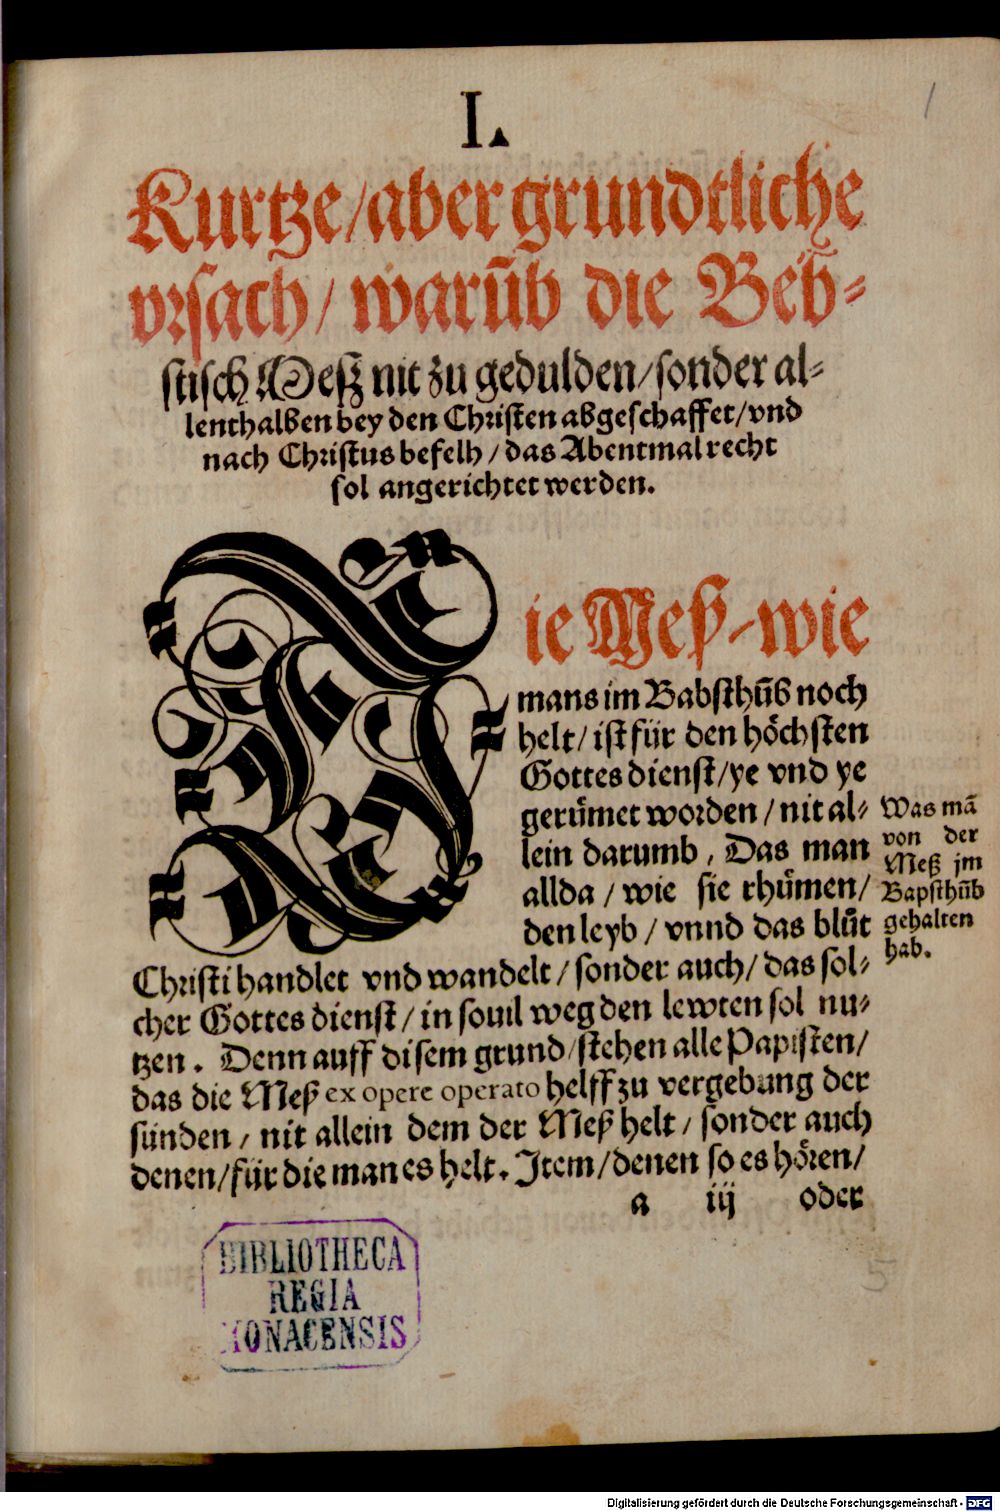 I.
1
Kurtze/aber grundtliche
vrsach/ warũb die Beb-
stisch Meß nit zu gedulden/sonder al-
lenthalben bey den Christen abgeschaffet/vnd
nach Christus befelh/das Abentmal recht
sol angerichtet werden.
Die Meß-wie
mans im Babsthũb noch
helt/ist für den höchsten
Gottes dienst/ye vnd ye
gerümet worden/nit al-
lein darumb, Das man
allda/wie sie rhümen/
den leyb/vnnd das blůt
Christi handlet vnd wandelt/sonder auch/das sol-
cher Gottes dienst/in souil weg den lewten sol nu-
tzen. Denn auff disem grund/stehen alle Papisten/
das die Meß ex opere operato helff zu vergebung der
sünden, nit allein dem der Meß helt/sonder auch
denen/für die man es helt. Item/denen so es hören/
a iij oder
Was mã
von der
Meß jm
Bapsthũb
gehalten
hab.
5
BIBLIOTHECA
REGIA
MONACENSIS
Digitalisierung gefördert durch die Deutsche Forschungsgemeinschaft - DFG